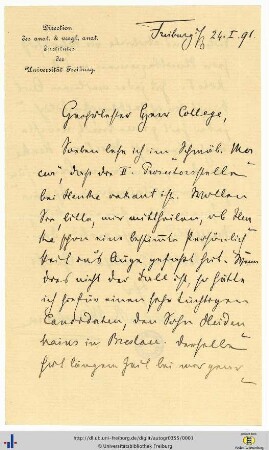 Direction
des anat. & vergl. anat.
Institutes
der
Universität Freiburg.
Freiburg i/B 24. I. 91.
Geehrtester Herr College,
Soeben lese ich im „Schwäb. Mer-
cur", daß die II. Prosectorstelle
bei Henke vakant ist. Wollen
Sie, bitte, mir mittheilen, ob Hen-
ke schon eine bestimmte Persönlich-
keit ins Auge gefaßt hat. Wenn
dies nicht der Fall ist, so hätte
ich hiefür einen sehr tüchtigen
Candidaten, den Sohn Heiden-
hains in Breslau. Derselbe
hat längere Zeit bei mir gear-
http://dl.ub.uni-freiburg.de/diglit/autogr0355/0001
© Universitätsbibliothek Freiburg